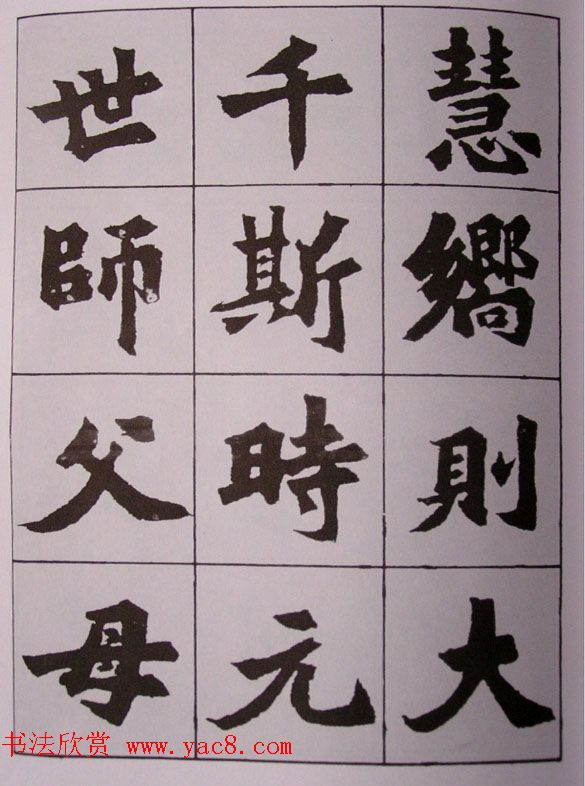 慧嚮則大
千斯時元
世師父母
书法欣赏 www.yac8.com